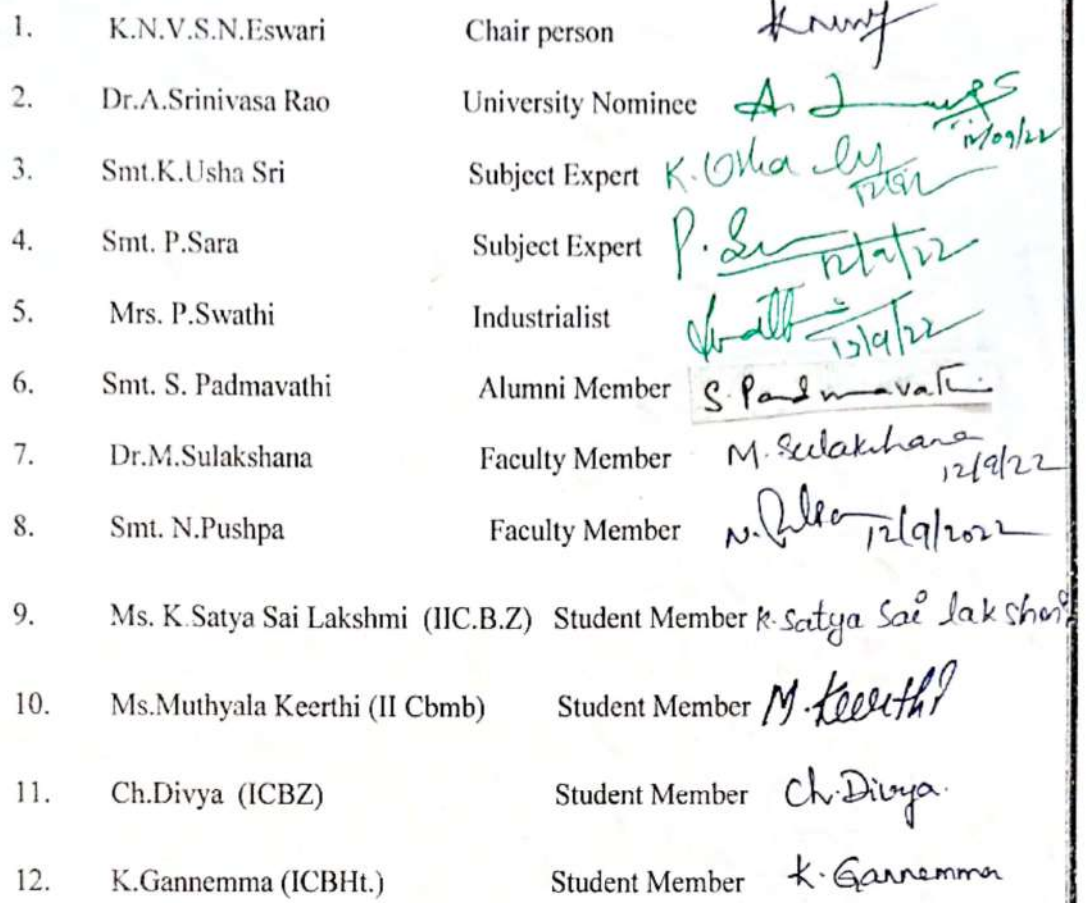 1. K.N.V.S.N.Eswari Chair person
2. Dr.A.Srinivasa Rao University Nominee A. 12/09/22
3. Smt.K.Usha Sri Subject Expert K. Usha
4. Smt. P.Sara Subject Expert P. 12/9/22
5. Mrs. P.Swathi Industrialist Swathi 12/9/22
6. Smt. S. Padmavathi Alumni Member S. Padmavathi
7. Dr.M.Sulakshana Faculty Member M. Sulakshana 12/9/22
8. Smt. N.Pushpa Faculty Member N. 12/9/2022
9. Ms. K.Satya Sai Lakshmi (IIC.B.Z) Student Member K. Satya Sai lakshmi
10. Ms.Muthyala Keerthi (II Cbmb) Student Member M. Keerthi
11. Ch.Divya (ICBZ) Student Member Ch. Divya.
12. K.Gannemma (ICBHt.) Student Member K. Gannemma